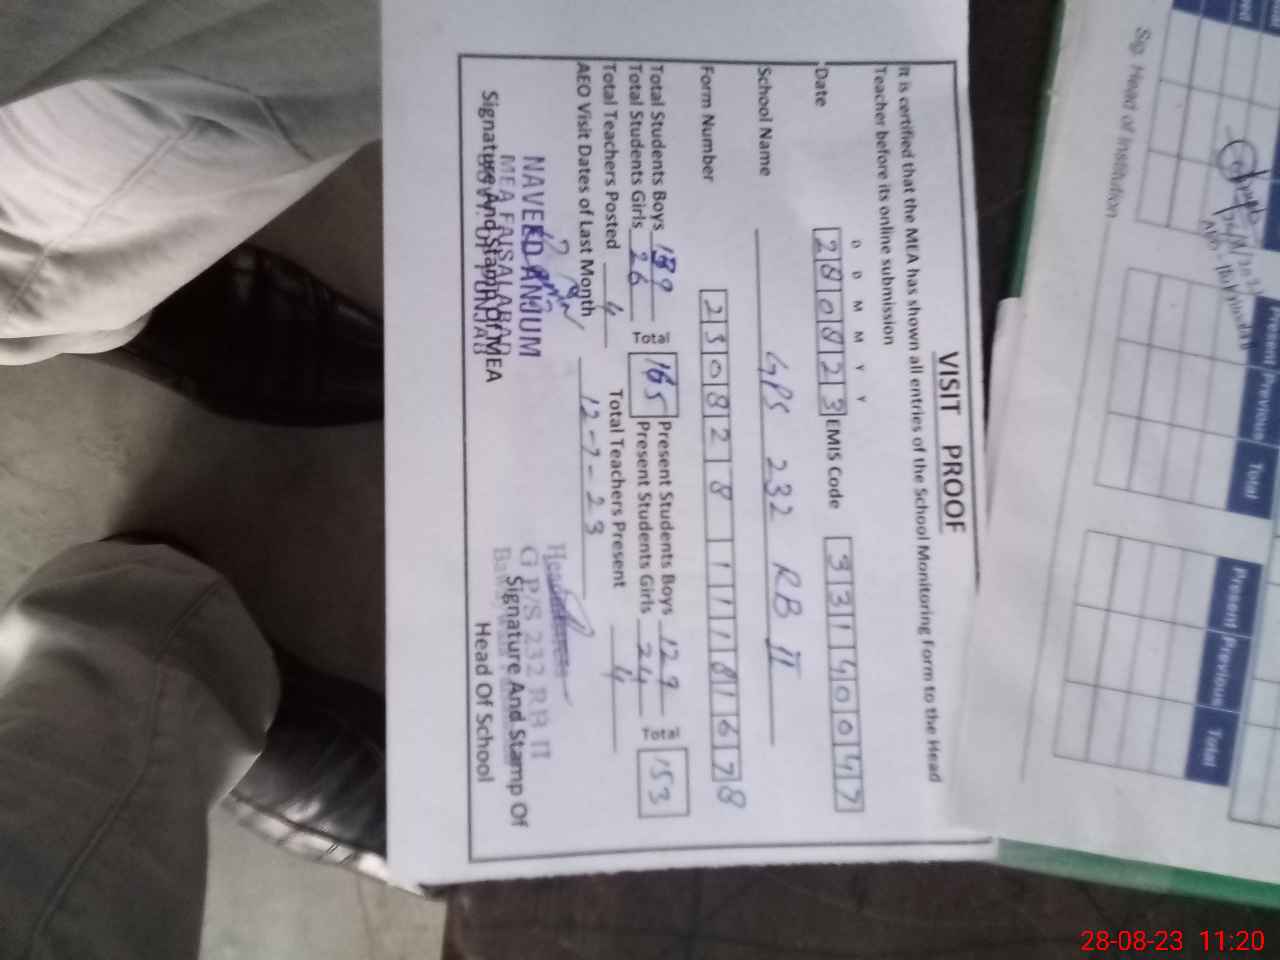 VISIT PROOF
It is certified that the MEA has shown all entries of the School Monitoring Form to the Head
Teacher before its online submission
D D M M Y Y
Date 280823 EMIS Code 33140047
School Name GPS 232 RB II
Form Number 230828 11181678
Total Students Boys 139 Total 165 Present Students Boys 129 Total 153
Total Students Girls 26 Present Students Girls 24
Total Teachers Posted 4 Total Teachers Present 4
AEO Visit Dates of Last Month 12-7-23
NAVEED ANJUM
MEA FAISALABAD
GOVT. OF PUNJAB
Signature And Stamp Of MEA
G P/S 232 RB II
Signature And Stamp Of
Head Of School
Sig. Head of Institution
Present Previous Total
Present Previous Total
28-08-23 11:20